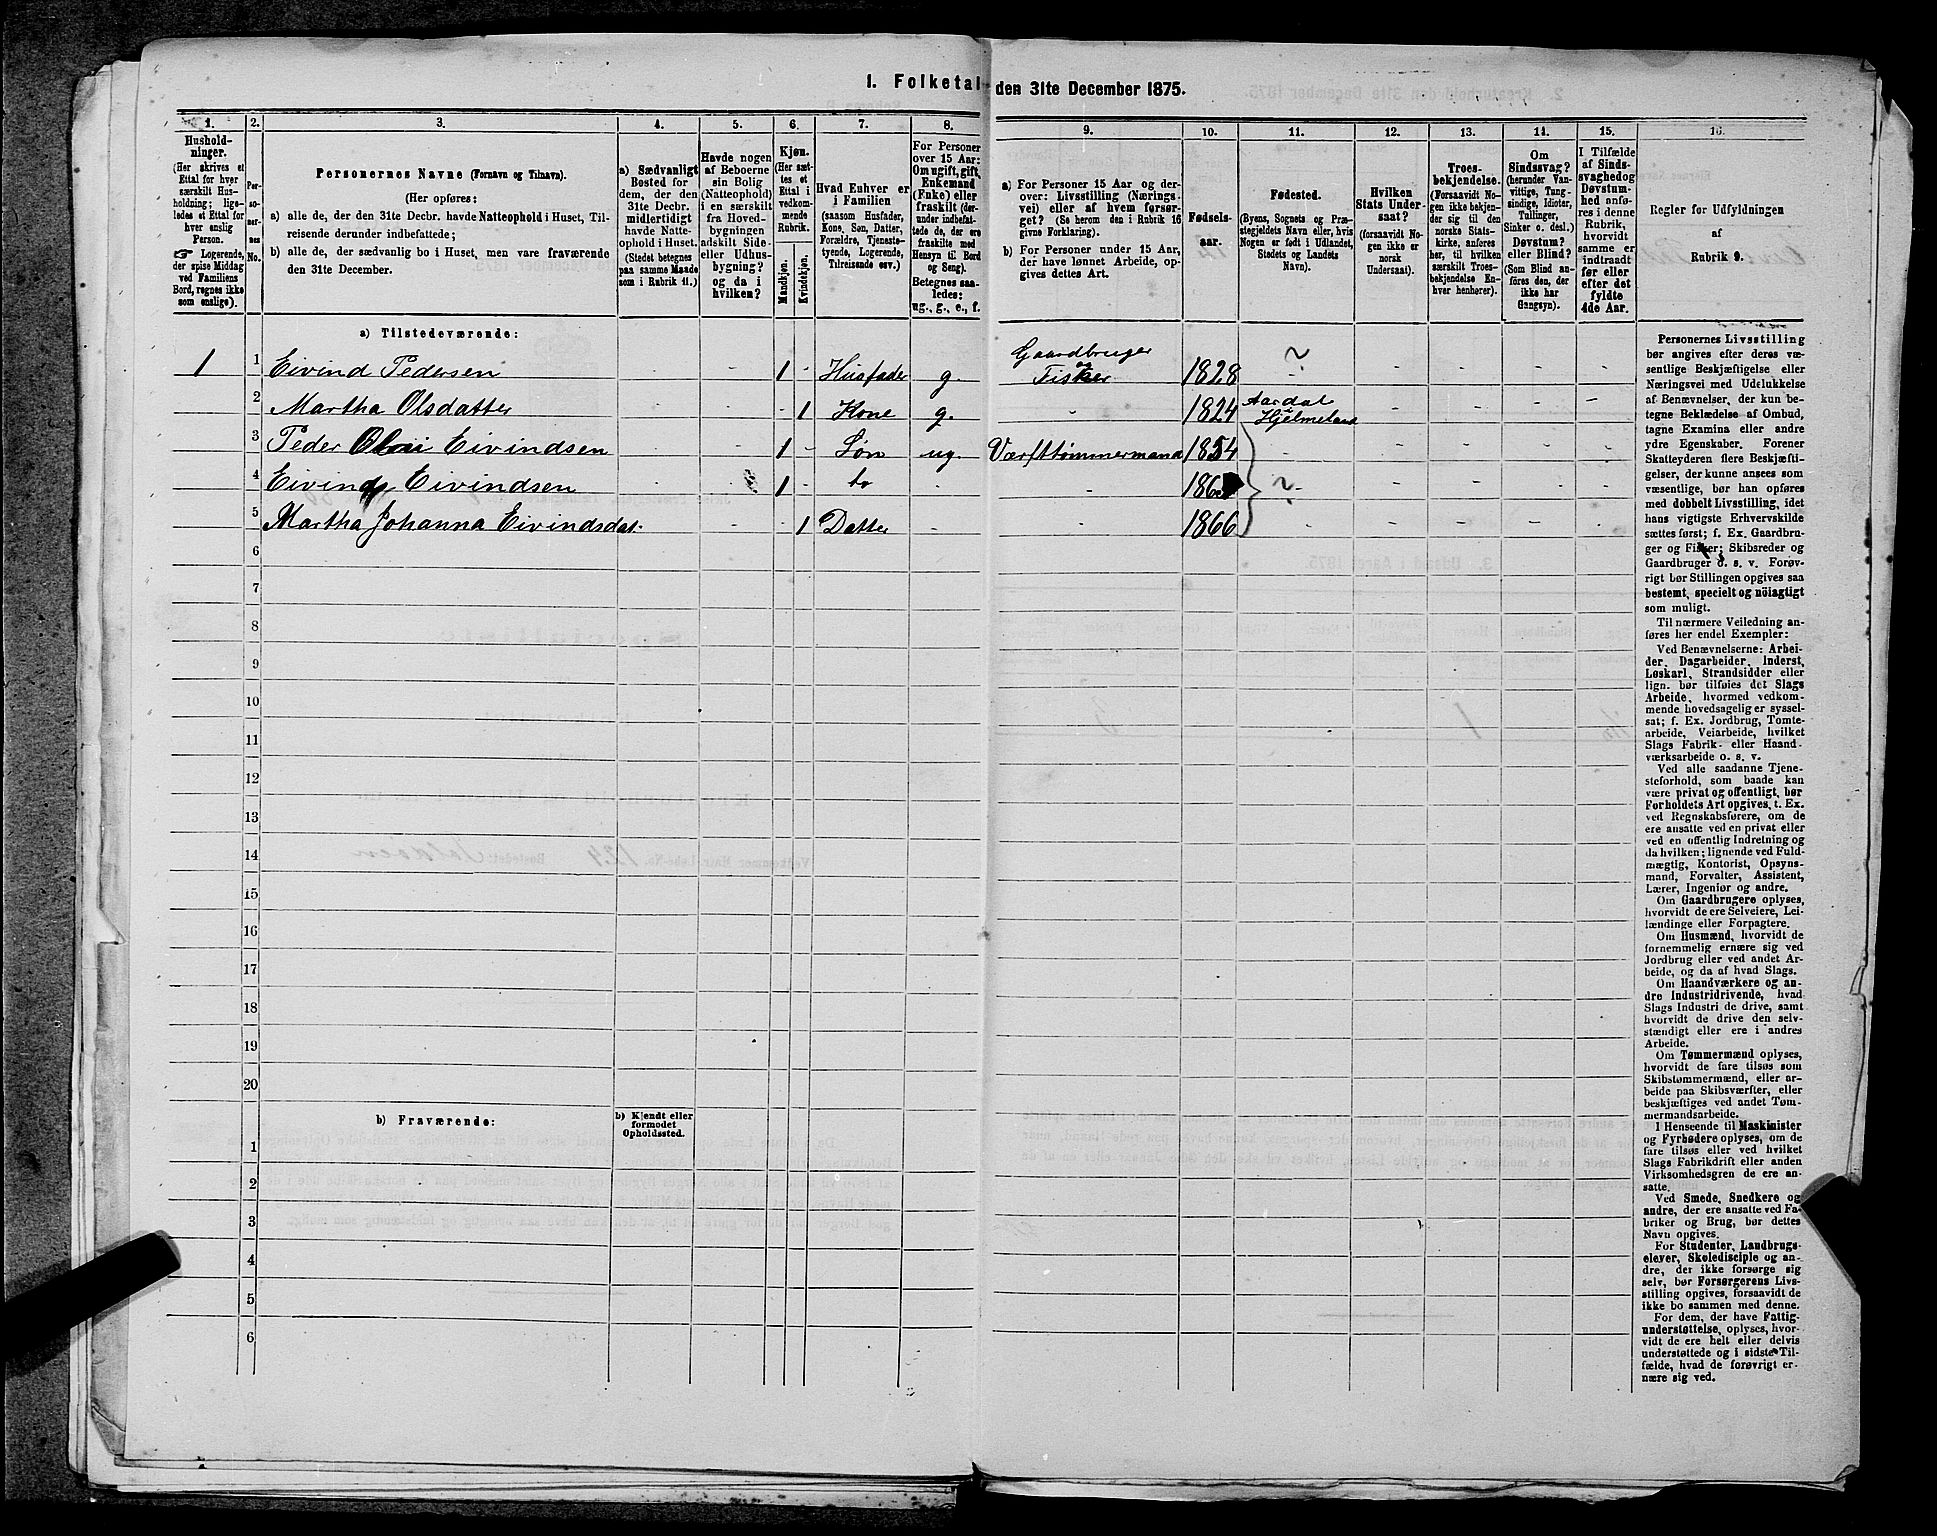 1. Folketal den 31te December 1875.
1.
Hushold-
ninger.
(Her skrives et
Ettal for hver
særskilt Hus-
holdning; lige-
ledes et Ettal for
hver enslig
Person.
☞ Logerende,
der spise Middag
ved Familiens
Bord, regnes ikke
som enslige).
2.
Per-
so-
ner-
nes
No.
3.
Personernes Navne (Fornavn og Tilnavn).
(Her opføres:
a) alle de, der den 31te Decbr. havde Natteophold i Huset, Til-
reisende derunder indbefattede;
b) alle de, der sædvanlig bo i Huset, men vare fraværende
den 31te December.
4.
a) Sædvanligt
Bosted for
dem, der den
31te Decbr.
midlertidigt
havde Natte-
ophold i Huset.
(Stedet betegnes
paa samme Maade
som i Rubrik 11.)
5.
Havde nogen
af Beboerne
sin Bolig
(Natteophold)
i en særskilt
fra Hoved-
bygningen
adskilt Side-
eller Udhus-
bygning?
og da i
hvilken?
6.
Kjøn.
(Her sæt-
tes et
Ettal i
vedkom-
mende
Rubrik.
Mandkjøn.
Kvindekjøn.
7.
Hvad Enhver er
i Familien
(saasom Husfader,
Kone, Søn, Datter,
Forældre, Tjeneste-
tyende, Logerende,
Tilreisende osv.)
8.
For Personer
over 15 Aar:
Om ugift, gift,
Enkemand
(Enke) eller
fraskilt (der-
under indbefat-
tede de, der ere
fraskilte med
Hensyn til Bord
og Seng).
Betegnes saa-
ledes:
ug., g., e., f.
9.
a) For Personer 15 Aar og der-
over: Livsstilling (Nærings-
vei) eller af hvem forsør-
get? (Se herom den i Rubrik 16
givne Forklaring).
b) For Personer under 15 Aar,
der have lønnet Arbeide, op-
gives dettes Art.
10.
Fødsels-
aar.
11.
Fødested.
(Byens, Sognets og Præ-
stegjeldets Navn eller, hvis
Nogen er født i Udlandet,
Stedets og Landets
Navn).
12.
Hvilken
Stats Under-
saat?
(forsaavidt No-
gen ikke er
norsk
Undersaat).
13.
Troes-
bekjendelse.
(Forsaavidt No-
gen ikke bekjen-
der sig til den
norske Stats-
kirke, anføres
her, til hvilken
særskilt Troes-
bekjendelse En-
hver henhører).
14.
Om
Sindssvag?
(herunder Van-
vittige, Tung-
sindige, Idioter,
Tullinger,
Sinker o. desl.)
Døvstum?
eller Blind?
(Som Blind an-
føres den, der
ikke har
Gangsyn).
15.
I Tilfælde
af Sinds-
svaghed og
Døvstum-
hed anfø-
res i denne
Rubrik,
hvorvidt
samme er
indtraadt
før eller
efter det
fyldte
4de Aar.
16.
Regler for Udfyldningen
af
Rubrik 9.
a) Tilstedeværende:
1 1 Eivind Pedersen - - 1 - Husfader g. Gaardbruger og Fisker 1828 ? - - - -
2 Martha Olsdatter - - 1 Kone g. - 1824 Aardal Hjelmeland - - - -
3 Peder Eivindsen - - 1 - Søn ug. Værfttømmermand 1854 - - - -
4 Eivind Eivindsen - - 1 - do - - ? - - - -
5 Martha Johanna Eivindsdat. - - 1 Datter - - 1866 - - - -
6
7
8
9
10
11
12
13
14
15
16
17
18
19
20
b) Fraværende:
b) Kjendt eller
formodet
Opholdssted.
1
2
3
4
5
6
Personernes Livsstilling
bør angives efter deres væ-
sentlige Beskjæftigelse eller
Næringsvei med Udelukkelse
af Benævnelser, der kun be-
tegne Beklædelse af Ombud,
tagne Examina eller andre
ydre Egenskaber. Forener
Skatteyderen flere Beskjæfti-
gelser, der kunne ansees som
væsentlige, bør han opføres
med dobbelt Livsstilling, idet
hans vigtigste Erhvervskilde
sættes først; f. Ex. Gaardbru-
ger og Fisker; Skibsreder og
Gaardbruger o. s. v. Forøv-
rigt bør Stillingen opgives saa
bestemt, specielt og nöiagtigt
som muligt.
Til nærmere Veiledning an-
føres her endel Exempler:
Ved Benævnelserne: Arbei-
der, Dagarbeider, Inderst,
Løskarl, Strandsidder eller
lign. bør tilføies det Slags
Arbeide, hvormed vedkom-
mende hovedsagelig er syssel-
sat; f. Ex. Jordbrug, Tomte-
arbeide, Veiarbeide, hvilket
Slags Fabrik- eller Haand-
værksarbeide o. s. v.
Ved alle saadanne Tjene-
steforhold, som baade kan
være privat og offentligt, bør
Forholdets Art opgives, t. Ex.
ved Regnskabsførere, om de
ere ansatte ved en privat eller
ved en offentlig Indretning og
da hvilken; lignende ved Fuld-
mægtig, Kontorist, Opsyns-
mand, Forvalter, Assistent,
Lærer, Ingeniør og andre.
Om Gaardbrugere oplyses,
hvorvidt de ere Selveiere, Lei-
lændinge eller Forpagtere.
Om Husmænd, hvorvidt de
fornemmelig ernære sig ved
Jordbrug eller ved andet Ar-
beide, og da af hvad Slags.
Om Haandværkere og an-
dre Industridrivende, hvad
Slags Industri de drive, samt
hvorvidt de drive den selv-
stændigt eller ere i andres
Arbeide.
Om Tømmermænd oplyses,
hvorvidt de fare tilsøs som
Skibstømmermænd, eller ar-
beide paa Skibsværfter, eller
beskjæftiges ved andet Tøm-
mermandsarbeide.
I Henseende til Maskinister
og Fyrbødere oplyses, om de
fare tilsøs eller ved hvilket
Slags Fabrikdrift eller anden
Virksomhedsgren de ere an-
satte.
Ved Smede, Snedkere og
andre, der ere ansatte ved Fa-
briker og Brug, bør dettes
Navn opgives.
For Studenter, Landbrugs-
elever, Skoledisciple og an-
dre, der ikke forsørge sig
selv, bør Forsørgerens Livs-
stilling opgives, forsaavidt de
ikke bo sammen med denne.
For dem, der have Fattig-
understøttelse, oplyses, hvor-
vidt de ere helt eller delvis
understøttede og i sidste Til-
fælde, hvad de forøvrigt er-
nære sig ved.